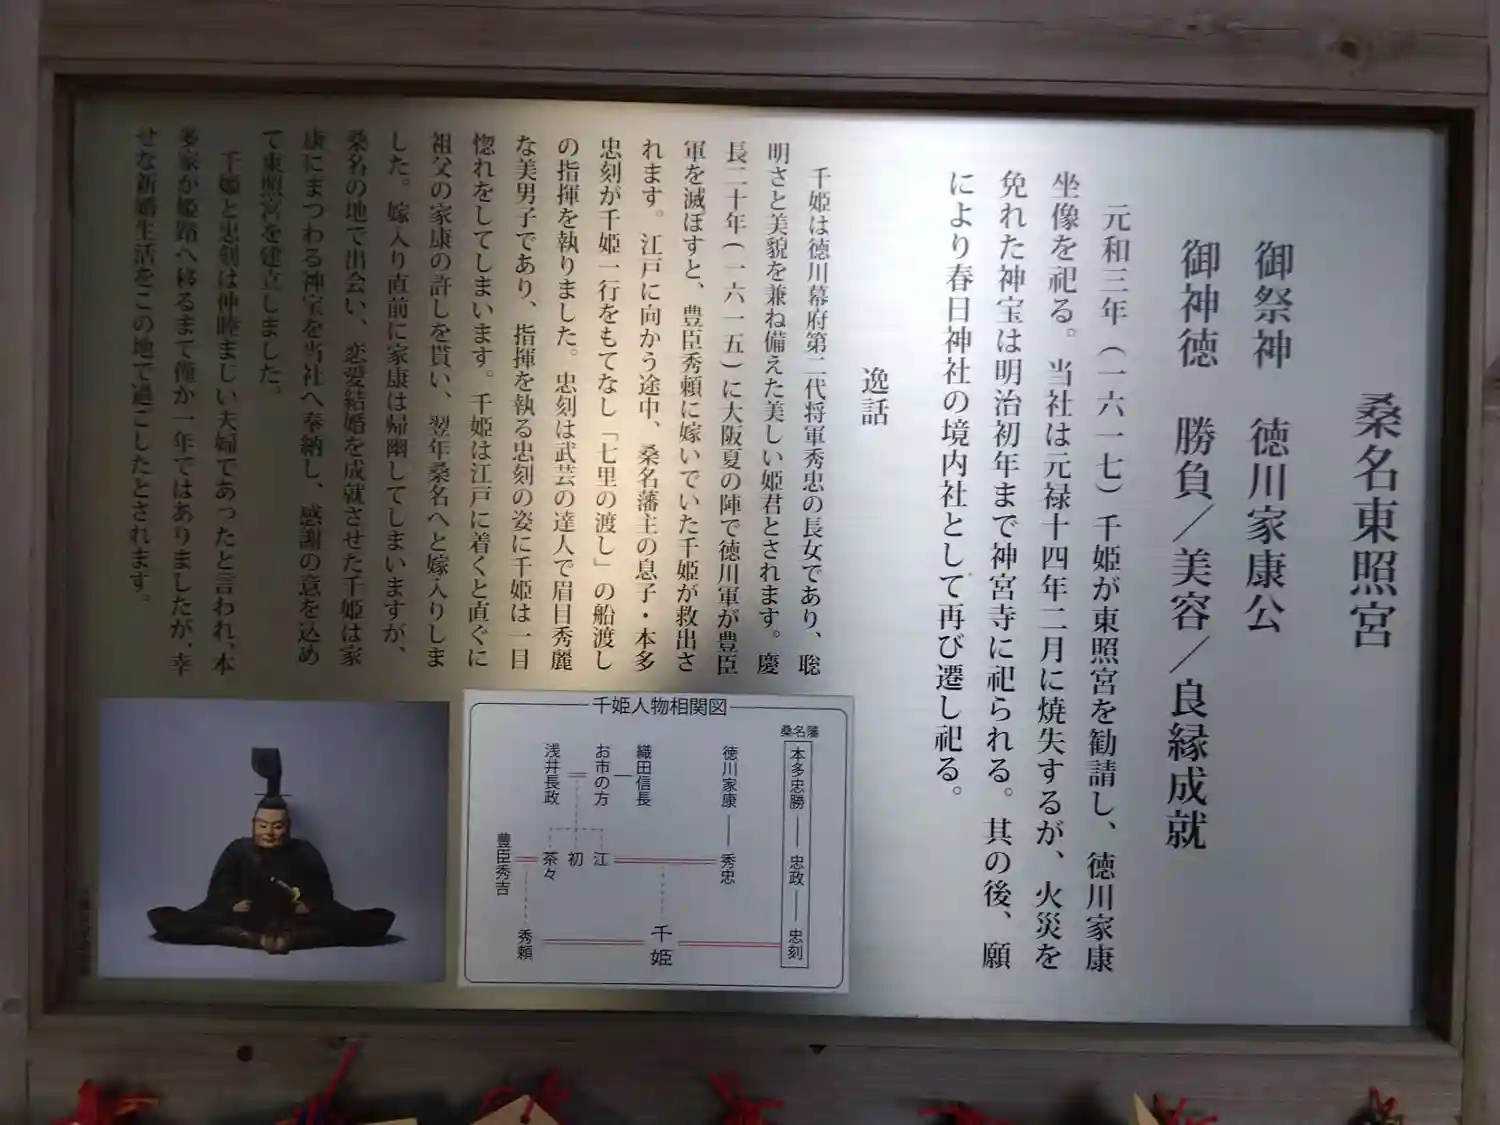 桑名東照宮
御祭神　徳川家康公
御神徳　勝負／美容／良縁成就
元和三年（一六一七）千姫が東照宮を勧請し、徳川家康
坐像を祀る。当社は元禄十四年二月に焼失するが、火災を
免れた神宝は明治初年まで神宮寺に祀られる。其の後、願
により春日神社の境内社として再び遷し祀る。
逸話
千姫は徳川幕府第二代将軍秀忠の長女であり、聡
明さと美貌を兼ね備えた美しい姫君とされます。慶
長二十年（一六一五）に大阪夏の陣で徳川軍が豊臣
軍を滅ぼすと、豊臣秀頼に嫁いでいた千姫が救出さ
れます。江戸に向かう途中、桑名藩主の息子・本多
忠刻が千姫一行をもてなし「七里の渡し」の船渡し
の指揮を執りました。忠刻は武芸の達人で眉目秀麗
な美男子であり、指揮を執る忠刻の姿に千姫は一目
惚れをしてしまいます。千姫は江戸に着くと直ぐに
祖父の家康の許しを貰い、翌年桑名へと嫁入りしま
した。嫁入り直前に家康は帰幽してしまいますが、
桑名の地で出会い、恋愛結婚を成就させた千姫は家
康にまつわる神宝を当社へ奉納し、感謝の意を込め
て東照宮を建立しました。
千姫と忠刻は仲睦まじい夫婦であったと言われ、本
多家が姫路へ移るまで僅か一年ではありましたが、幸
せな新婚生活をこの地で過ごしたとされます。
千姫人物相関図
桑名藩
本多忠勝
忠政
忠刻
徳川家康
秀忠
織田信長
お市の方
浅井長政
江
初
茶々
豊臣秀吉
千姫
秀頼